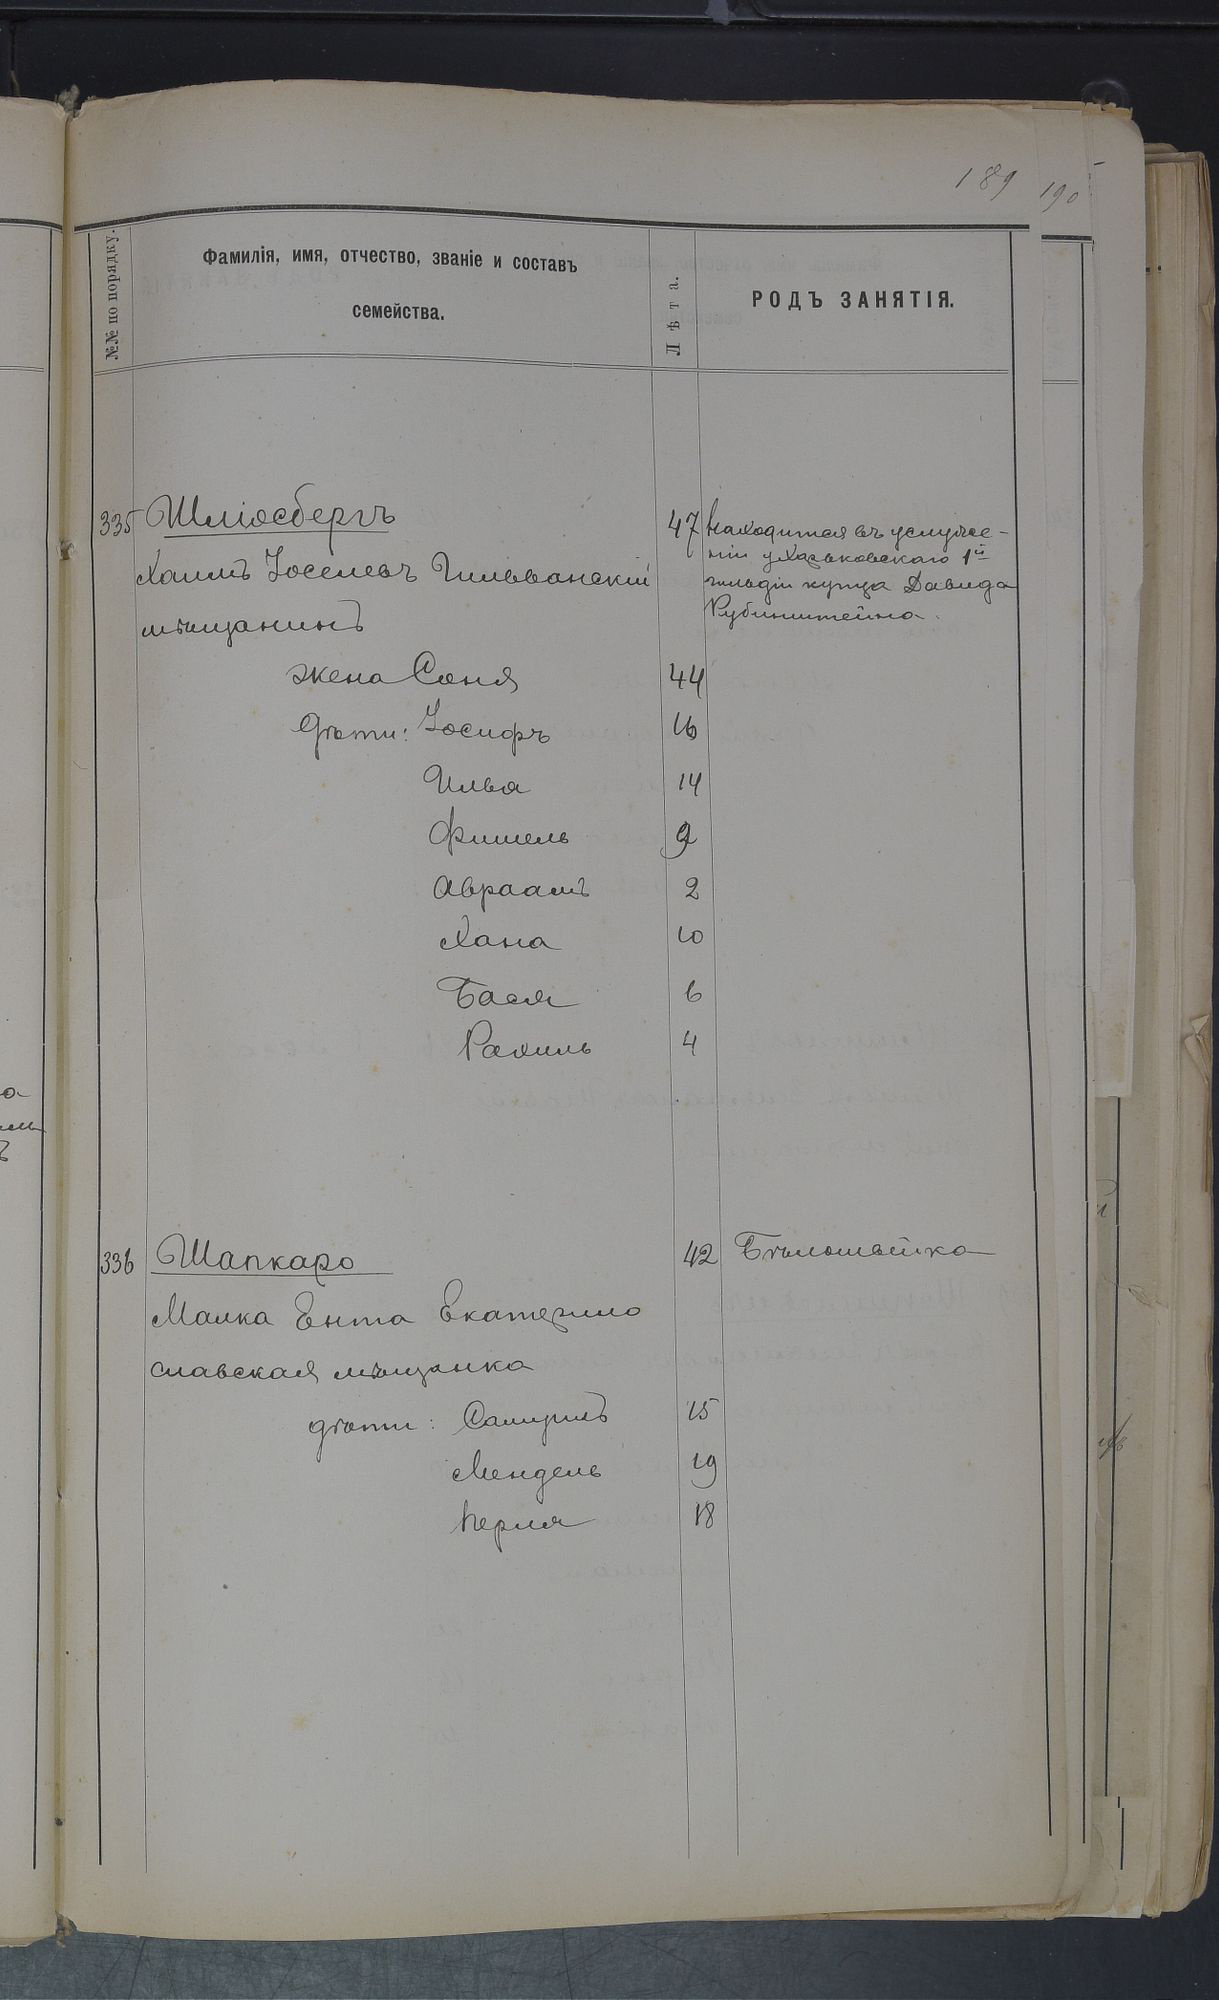 189 190
№№ по порядку.
Фамилія, имя, отчество, званіе и составъ
семейства.
Лѣта.
РОДЪ ЗАНЯТІЯ.
335 Шліосбергъ 47 Находится въ услуже-
Хаимъ Іоселевъ
ніи у Харьковскаго 1й
гильдіи купца Давида
мѣщанинъ Рубинштейна.
жена Соня 44
дѣти: Іосифъ 16
Илья 14
Фишель 9
Авраамъ 2
Хана 10
Бася 6
Рахиль 4
336 Шапкаро 42 Бѣлошвейка
Малка Ента Екатерино
славская мѣщанка
дѣти: Самуилъ 15
Мендель 19
Перля 18